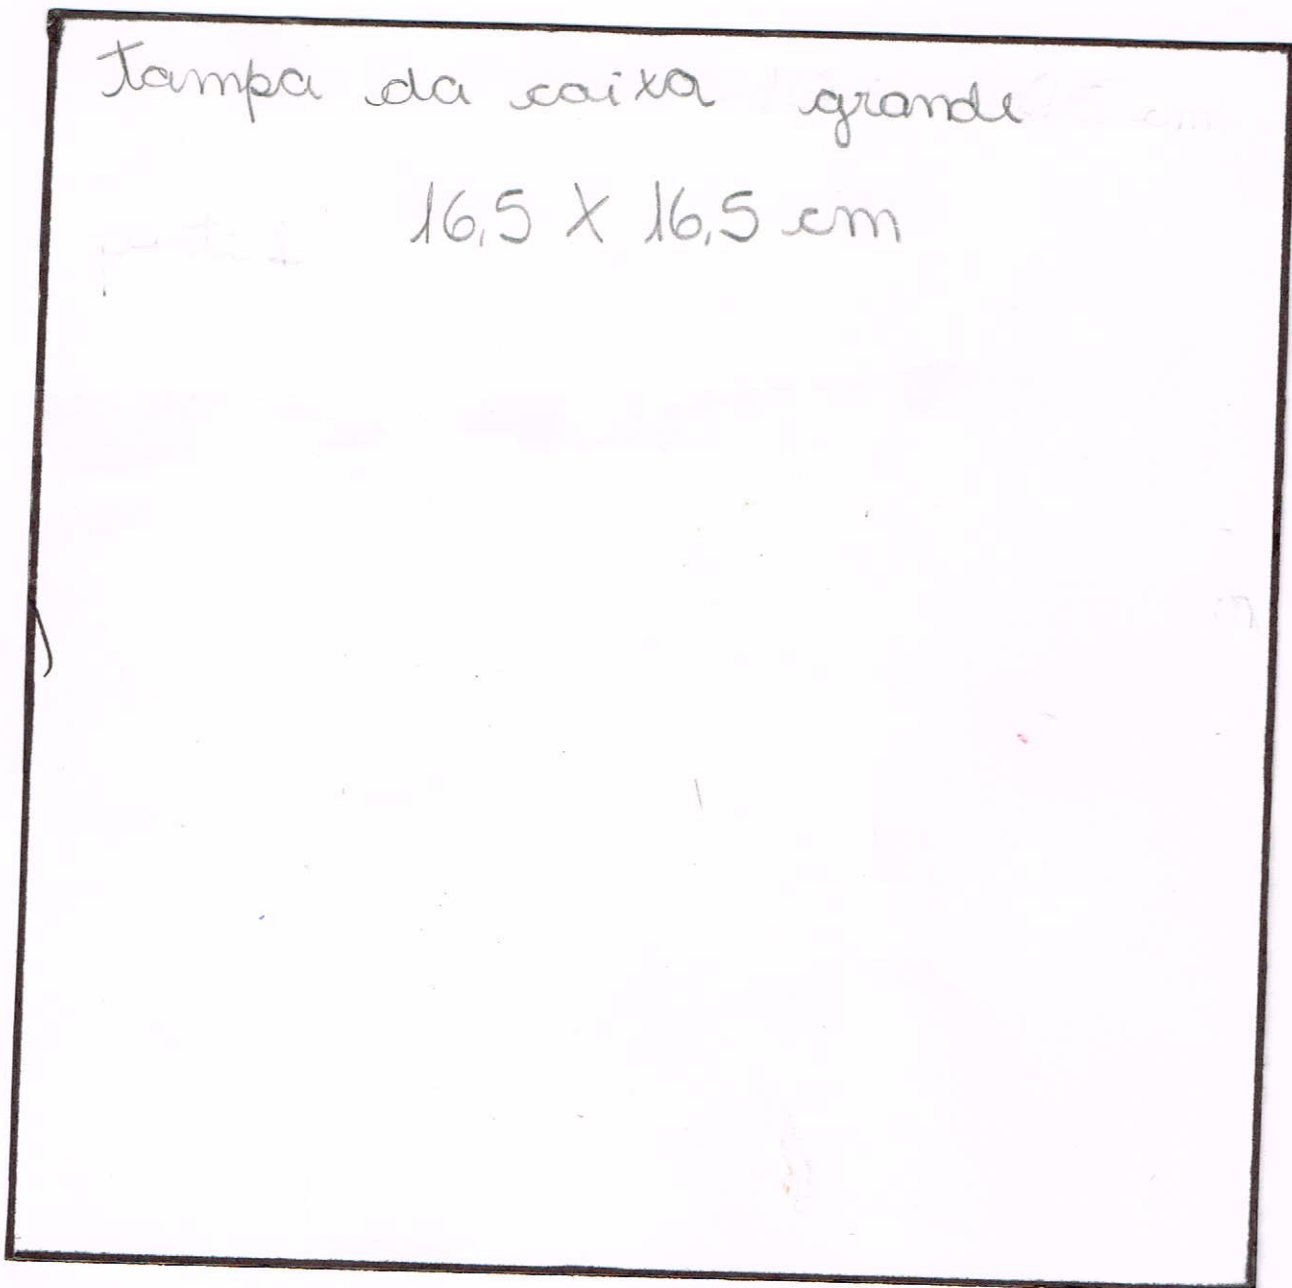 Tampa da caixa grande
16,5 X 16,5 cm